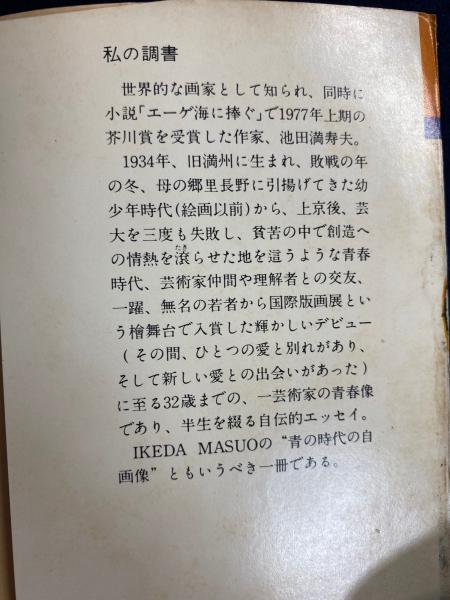 私の調書
世界的な画家として知られ、同時に
小説「エーゲ海に捧ぐ」で1977年上期の
芥川賞を受賞した作家、池田満寿夫。
1934年、旧満州に生まれ、敗戦の年
の冬、母の郷里長野に引揚げてきた幼
少年時代(絵画以前)から、上京後、芸
大を三度も失敗し、貧苦の中で創造へ
の情熱を滾らせた地を這うような青春
時代、芸術家仲間や理解者との交友、
一躍、無名の若者から国際版画展とい
う檜舞台で入賞した輝かしいデビュー
(その間、ひとつの愛と別れがあり、
そして新しい愛との出会いがあった)
に至る32歳までの、一芸術家の青春像
であり、半生を綴る自伝的エッセイ。
IKEDA MASUOの“青の時代の自
画像”ともいうべき一冊である。